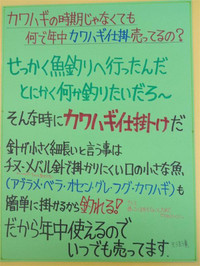 カワハギの時期じゃなくても
何で年中カワハギ仕掛売ってるの?
せっかく魚釣りへ行ったんだ
とにかく何か釣りたいだろ～
そんな時にカワハギ仕掛けだ
針が小さく細軸と言う事は
チヌ・メバル針で掛かりにくい口の小さな魚、
(アブラメ・ベラ・オセン・グレ・フグ・カワハギ)も
簡単に掛けるから釣れる!
だから年中使えるので
いつでも売ってます。